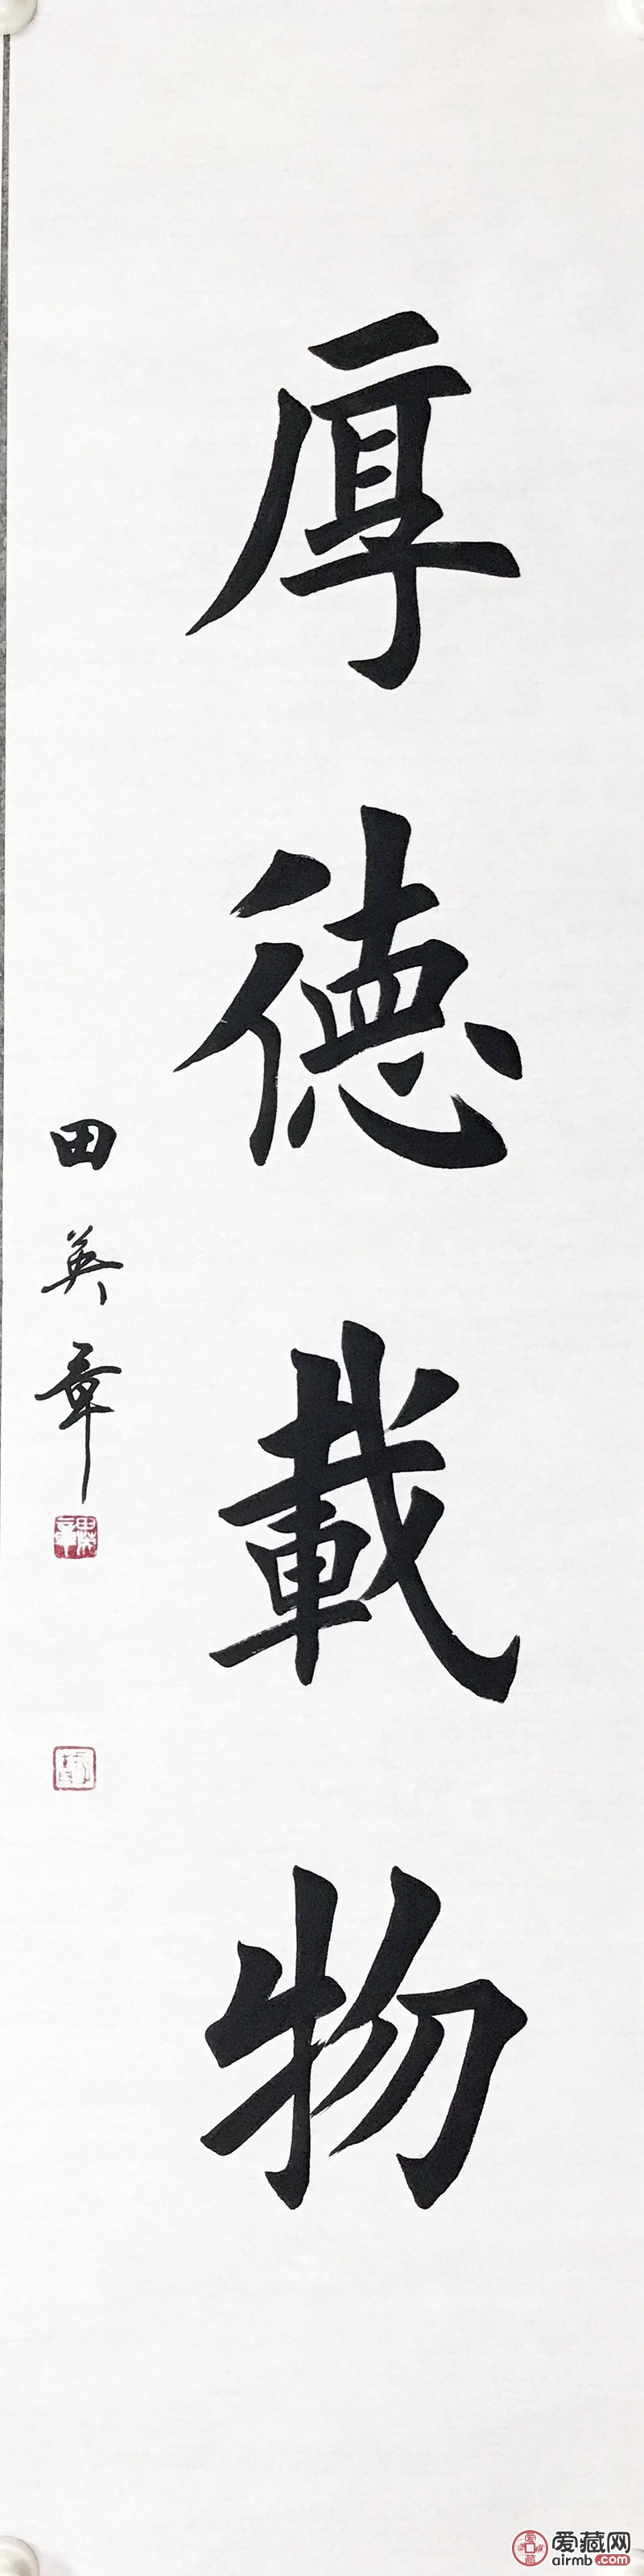 厚德載物
田英章
田英章
爱藏网
airmb.com